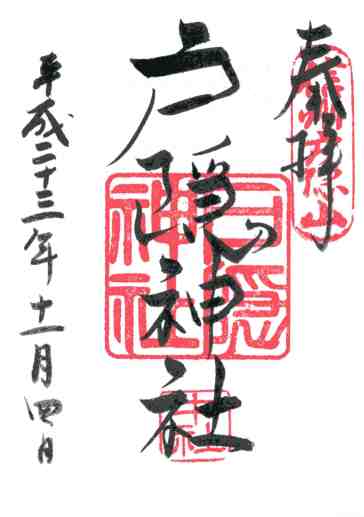 奉拝
戸隠神社
平成二十三年十一月四日
戸隠
神社